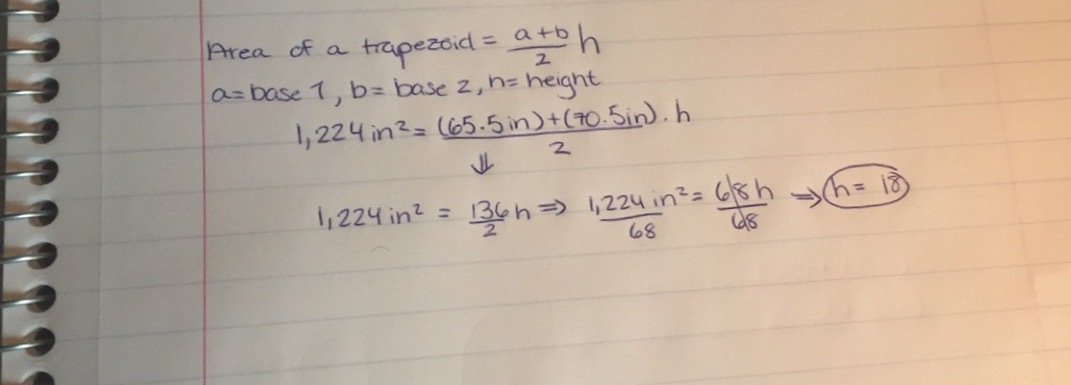 Area of a trapezoid = a+b/2 h
a=base 1, b= base 2, h= height
1,224in²= (65.5in)+(70.5in)/2 · h
⇓
1,224in² = 136/2 h ⇒ 1,224in²/68 = 68h/68 → h= 18